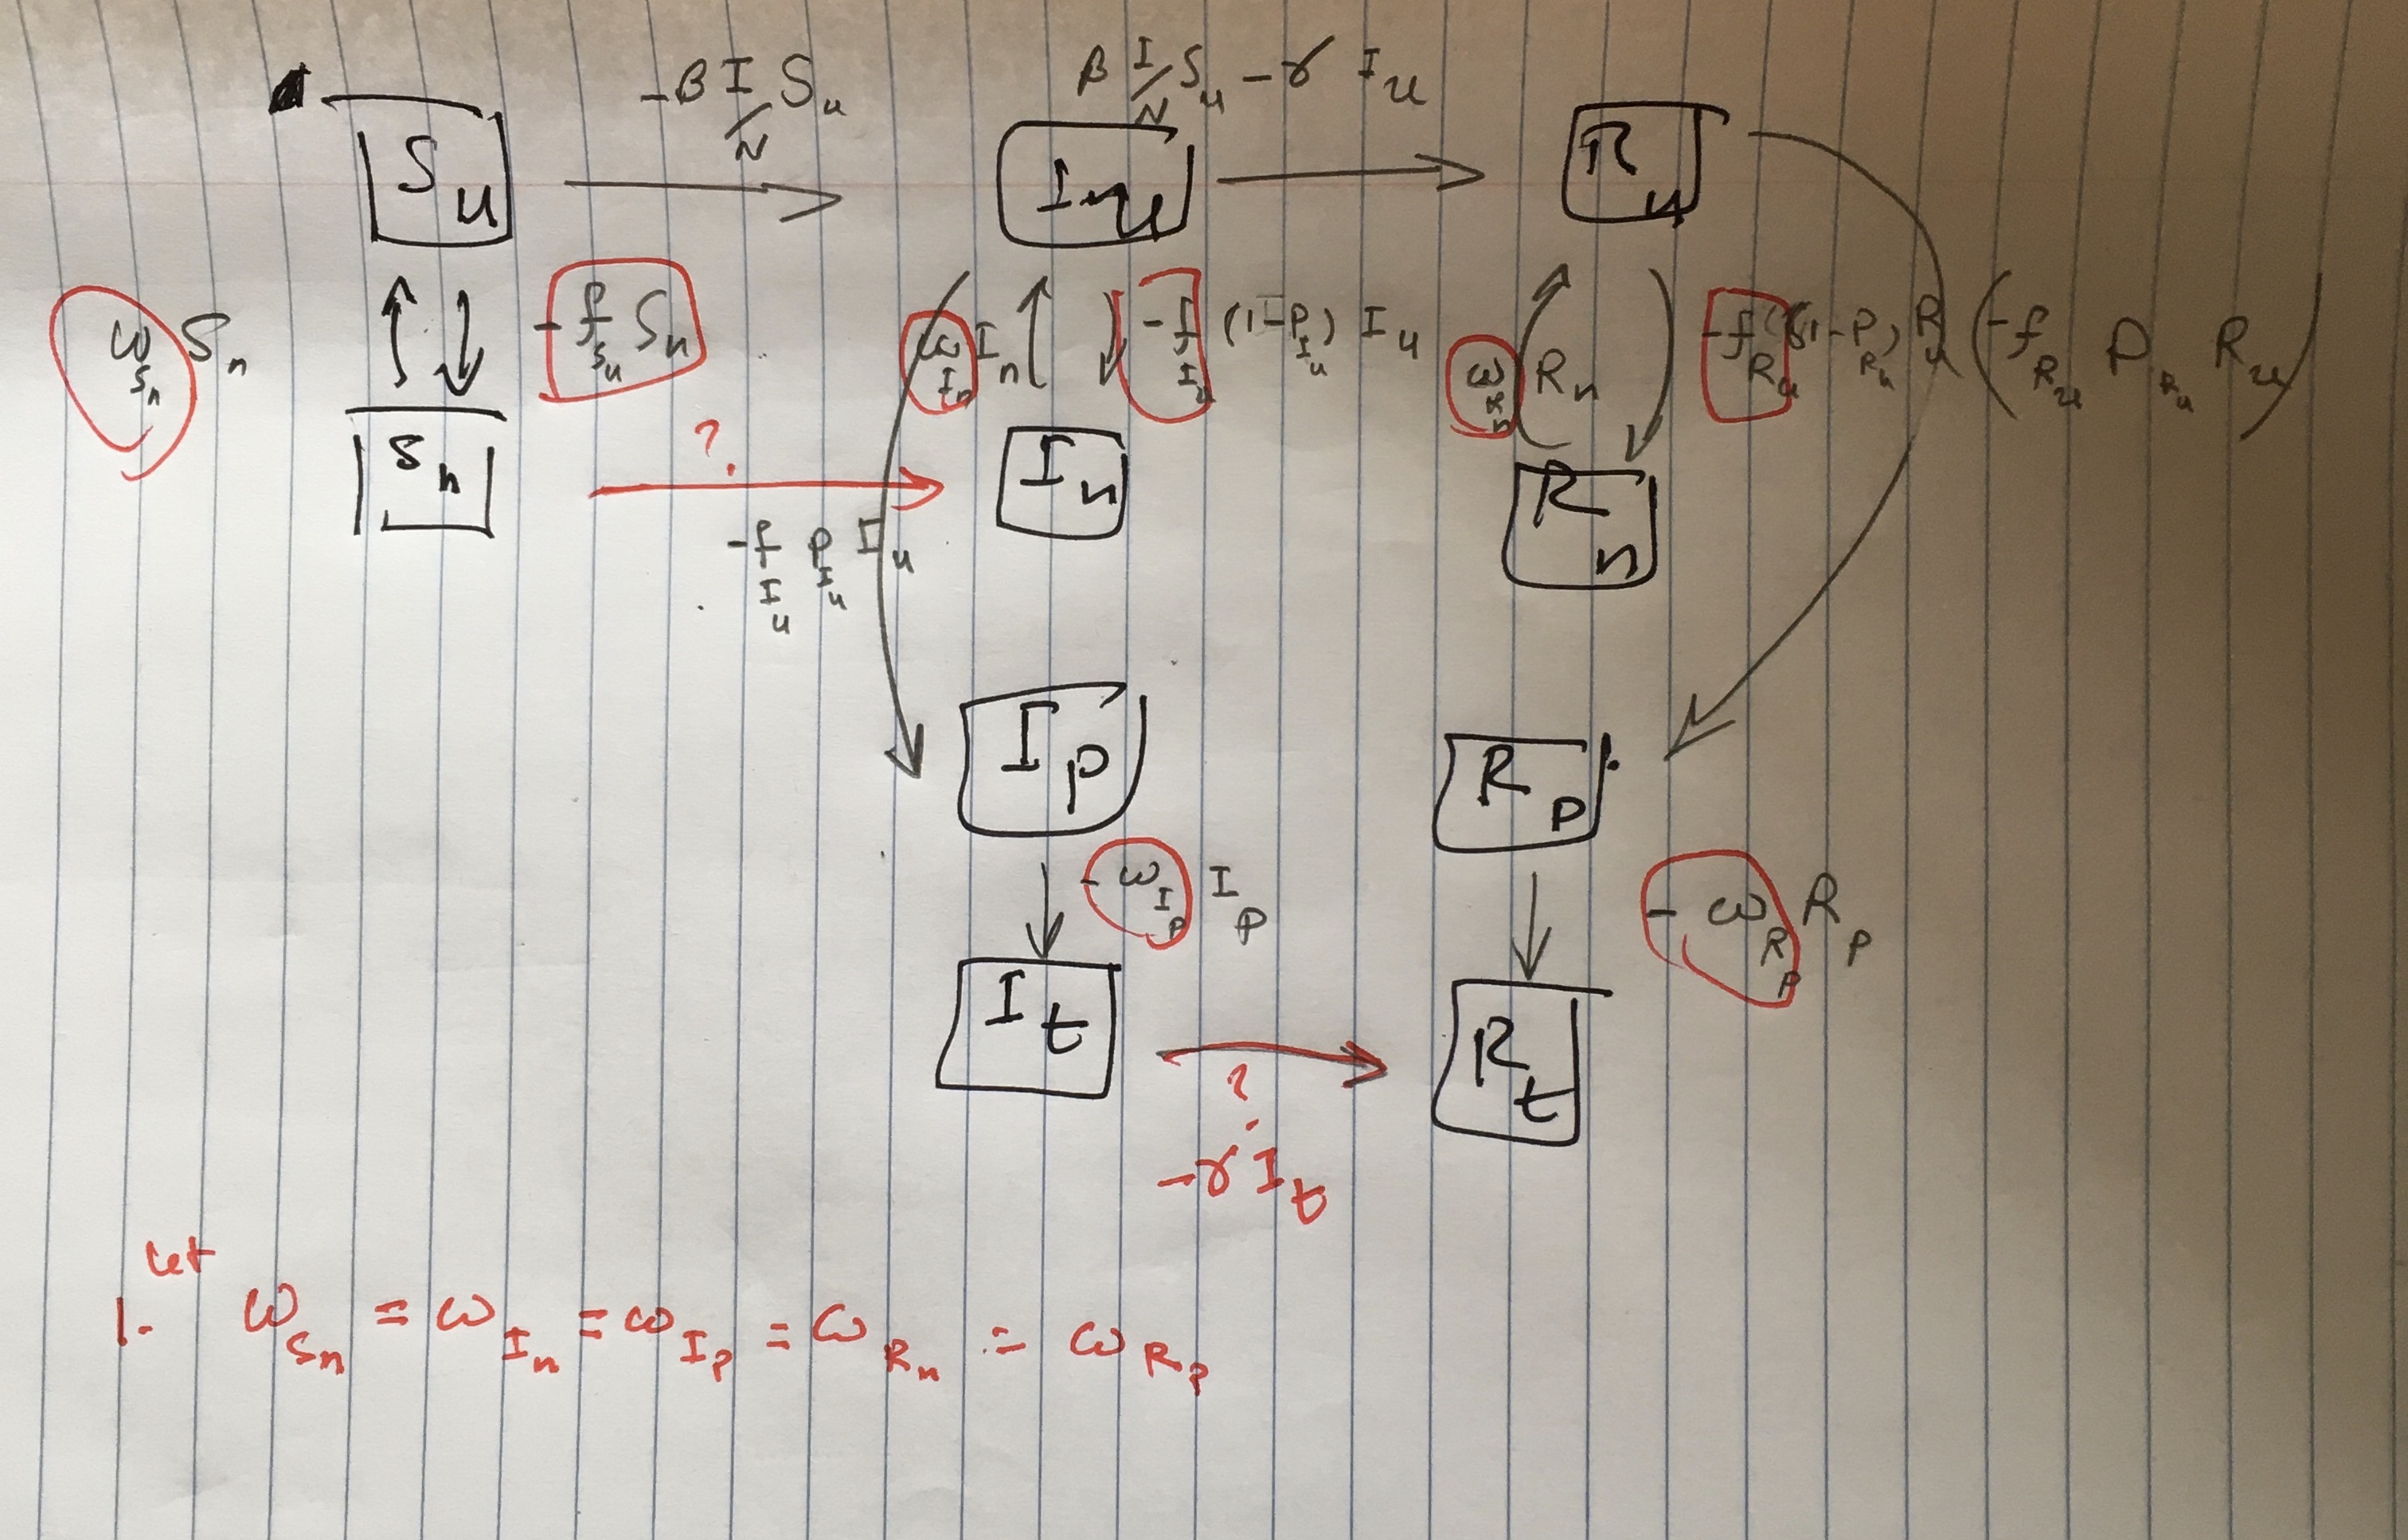 -β I/N S_u
β I/N S_u - γ I_u
S_u
I_u
R_u
ω_{S_n} S_n
-f_{S_u} S_n
ω_{I_n} I_n
-f_{I_u} (1-P_{I_u}) I_u
ω_{R_n} R_n
-f_{R_u} (1-P_{R_u}) R_u
(-f_{R_u} P_{R_u} R_u)
S_n
?
I_n
R_n
-f_{I_u} P_{I_u} I_u
I_p
R_p
-ω_{I_p} I_p
-ω_{R_p} R_p
I_t
R_t
?
-γ I_t
let
1. ω_{S_n} = ω_{I_n} = ω_{I_p} = ω_{R_n} = ω_{R_p}